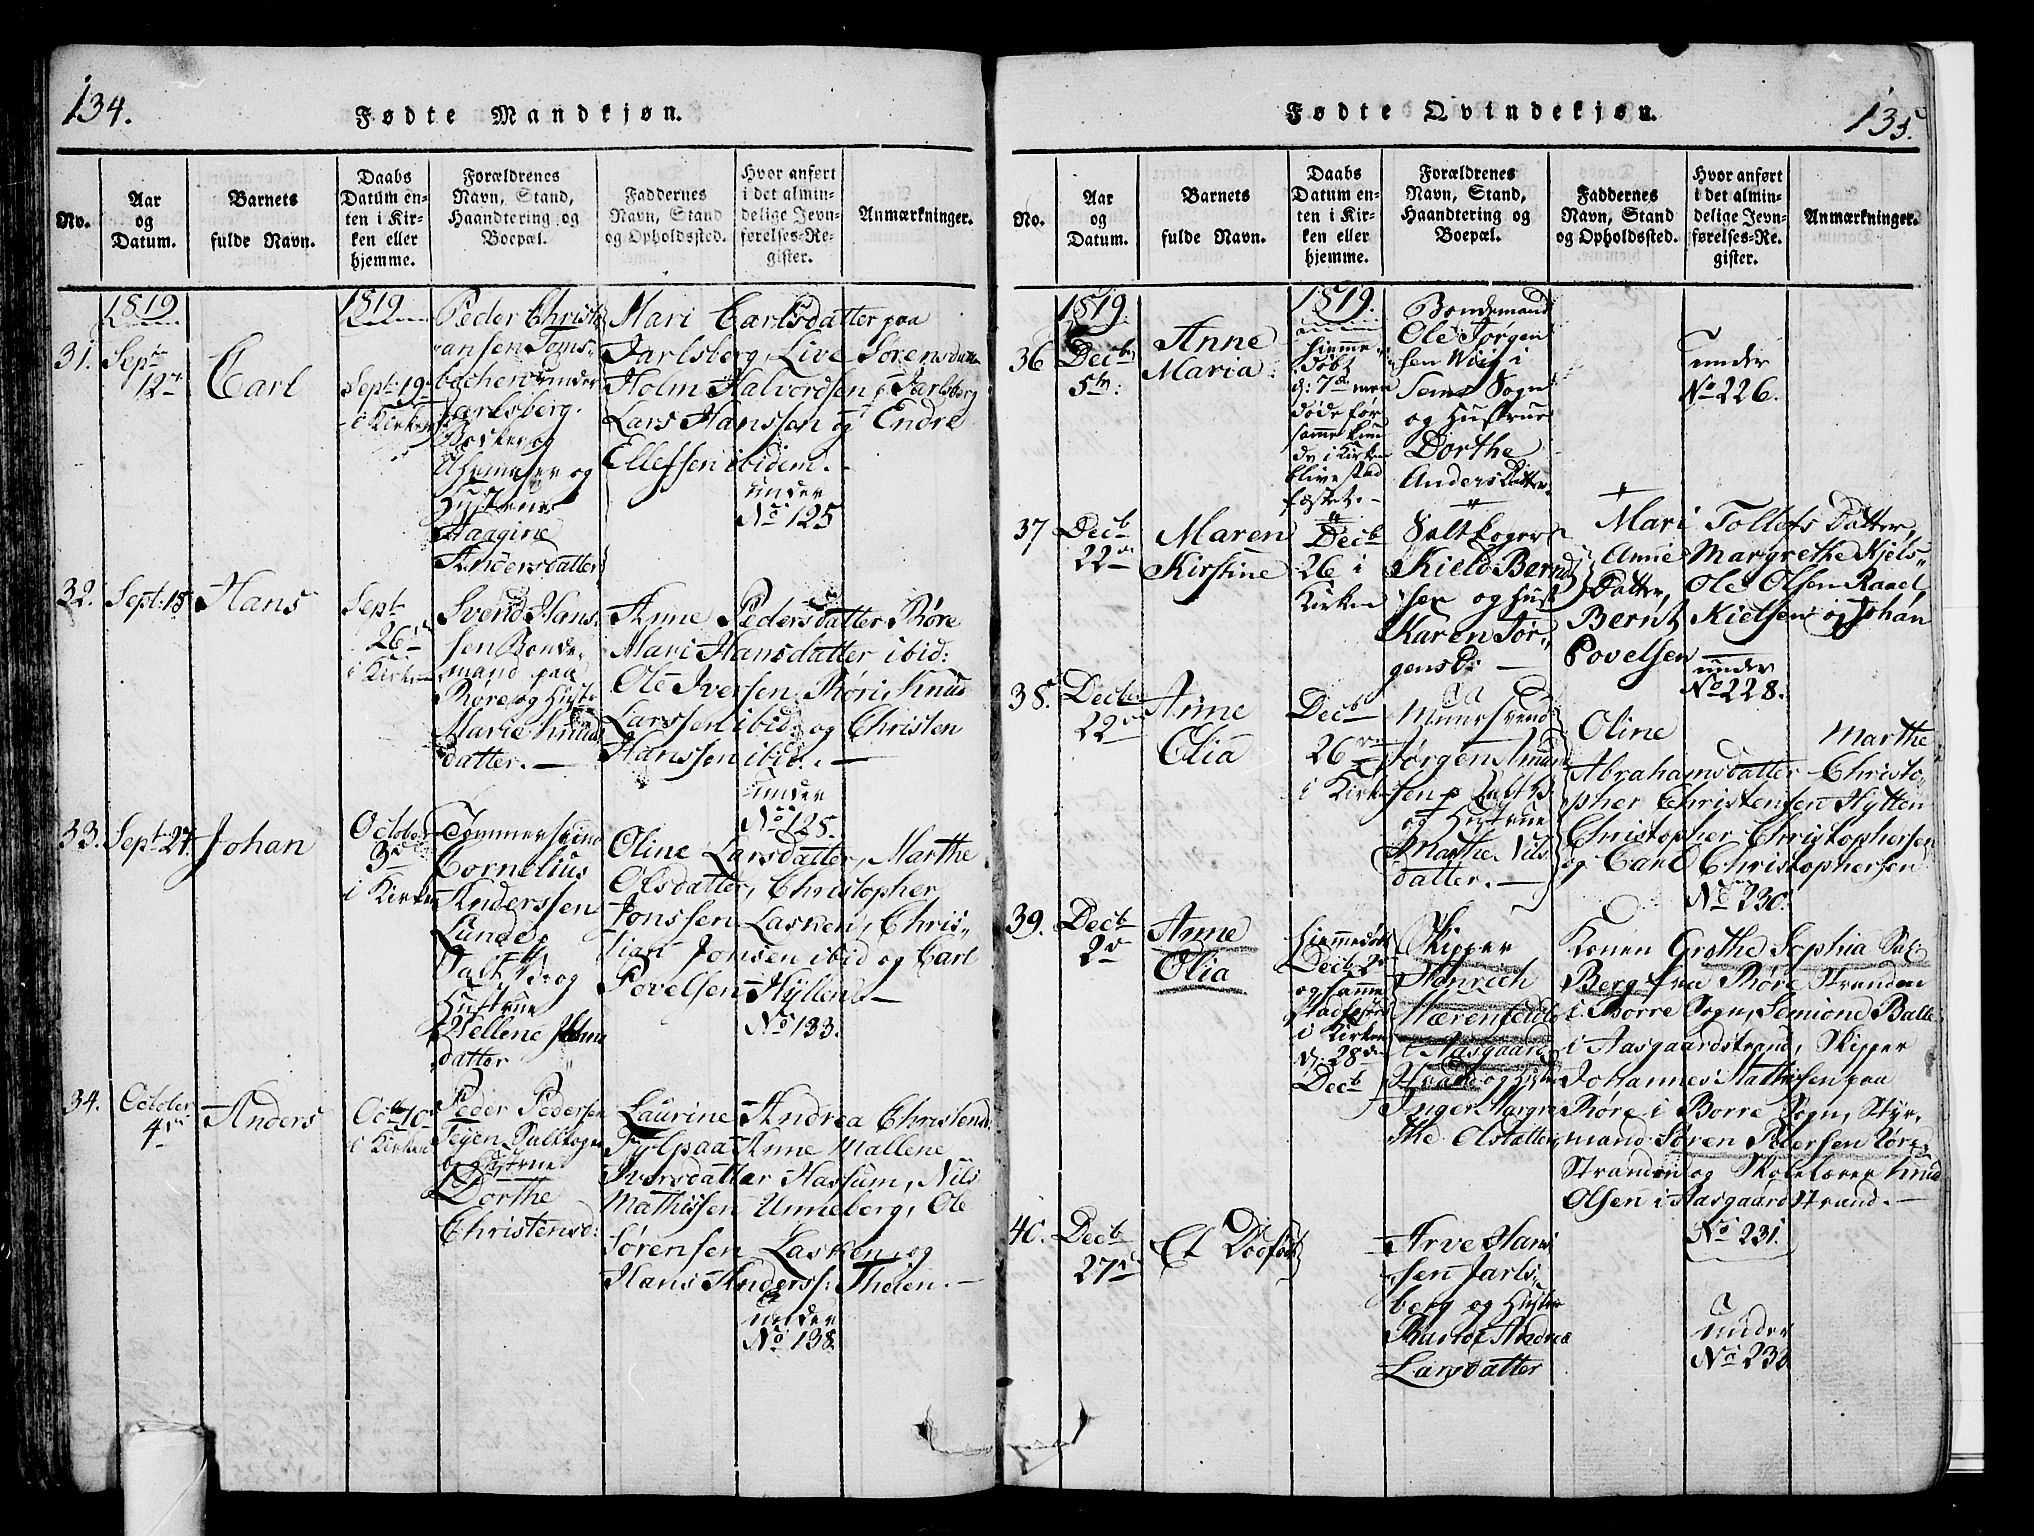 134.
Fødte Mandkjøn.
No.
Aar
og
Datum.
Barnets
fulde Navn.
Daabs
Datum en-
ten i Kir-
ken eller
hjemme.
Forældrenes
Navn, Stand,
Haandtering og
Boepæl.
Faddernes
Navn, Stand
og Opholdssted.
Hvor anført
i det almin-
delige Jevn-
førelses-Re-
gister.
Anmærkninger.
1819
31. Sept
12
Carl
1819
Sept: 19
i Kirken
Peder Christi
ansen
under
Jarlsberg.
og
og
Hustrue
Aagine
Andersdatter
Mari Carlsdatter paa
Jarlsberg, Live Sørensdatter
Holm Halvordsen, Jarlsberg
Lars Hanssen og Endre
Ellefsen ibidem.
under
No 125
32. Sept: 15
Hans
Sept
26
i Kirken
Svend Hans-
sen Bonde-
mand paa
Røre og Hustr
Marie Knuds
datter.
Anne Pedersdatter Røre
Mari Hansdatter ibid:
Ole Iversen Røri Knud
Larssen ibid: og Christen
Hanssen ibid.
under
No 125.
33. Sept 27
Johan
October
3
i Kirken
Tømmersvend
Cornelius
Anderssen
Lunde
og
Hustrue
Hellene
datter
Oline Larsdatter, Marthe
Olsdatter, Christopher
Jonssen Lasken, Chris-
tian Jonsen ibid og Carl
Povelsen Hytten.
No 133.
34. October
4
Anders
Octb 10
i Kirken
Peder Pedersen
Teyen Saltkoger
og Hustrue
Dorthe
Christensd:
Laurine Andrea Christensd.
Anne Mallene
Iversdatter Hassum, Nils
Mathissen Unneberg, Ole
Sørensen Lasken, og
Hans Anderss: Theien.
under
No 138
135.
Fødte Qvindekjøn.
No.
Aar
og
Datum.
Barnets
fulde Navn.
Daabs
Datum en-
ten i Kir-
ken eller
hjemme.
Forældrenes
Navn, Stand,
Haandtering og
Boepæl.
Faddernes
Navn, Stand
og Opholdssted.
Hvor anført
i det almin-
delige Jevn-
førelses-Re-
gister.
Anmærkninger.
1819.
36 Decb
5
Anne
Maria
1819.
Hjemme-
døbt
d: 7 men
døde før
samme kun
de i Kirken
blive stad
fæstet.
Bondemand
Ole Jørgen
sen Wiig i
Sems Sogn
og Hustrue
Dorthe
Andersdatter.
under
No 226.
37 Decb
22
Maren
Kirstine
Decb
26 i
Kirken
Saltkoger
Kield Bernt
sen og Hust
Karen Jør-
gensd:
Mari Tollefs Datter,
Anne Margrethe Kjels-
Datter, Ole Olsen Raael
Bernt Kielsen og Johan
Povelsen
under
No 228.
38. Decbr
22
Anne
Olia
Decb
26
i Kirken
Muursvend
Jørgen Amund
sen p. Saltv:
og Hustrue
Marthe Nils
datter.
Oline Marthe
Abrahamsdatter Christo-
pher Christensen Hytten
Christopher Christophersen
og Carl Christophersen
No 230.
39. Decb
2
Anne
Olia
Hiemmedøbt
Decb 2
og samme
stadfæstet
i Kirken
d: 28
Decb
Skipper
Henrich
Værenfeldt
i Aasgaard
strand og Hustr
Inger Margre
the Olsdatter
Konen Grethe Sophia Sol
Berg fra Røre Stranden
i Borre Sogn, Semione Balle
i Aasgaardstrand, Skipper
Johannes Mathisen paa
Røre i Borre Sogn, Styr-
mand Søren Pedersen Røre
Stranden og Skolelærer Knud
Olsen i Aasgaardstrand.
No 231.
40. Decb
27
Et Dødfødt
Arve Hans
sen Jarls-
berg og Hustru
Andrea
Larsdatter
under
No 230